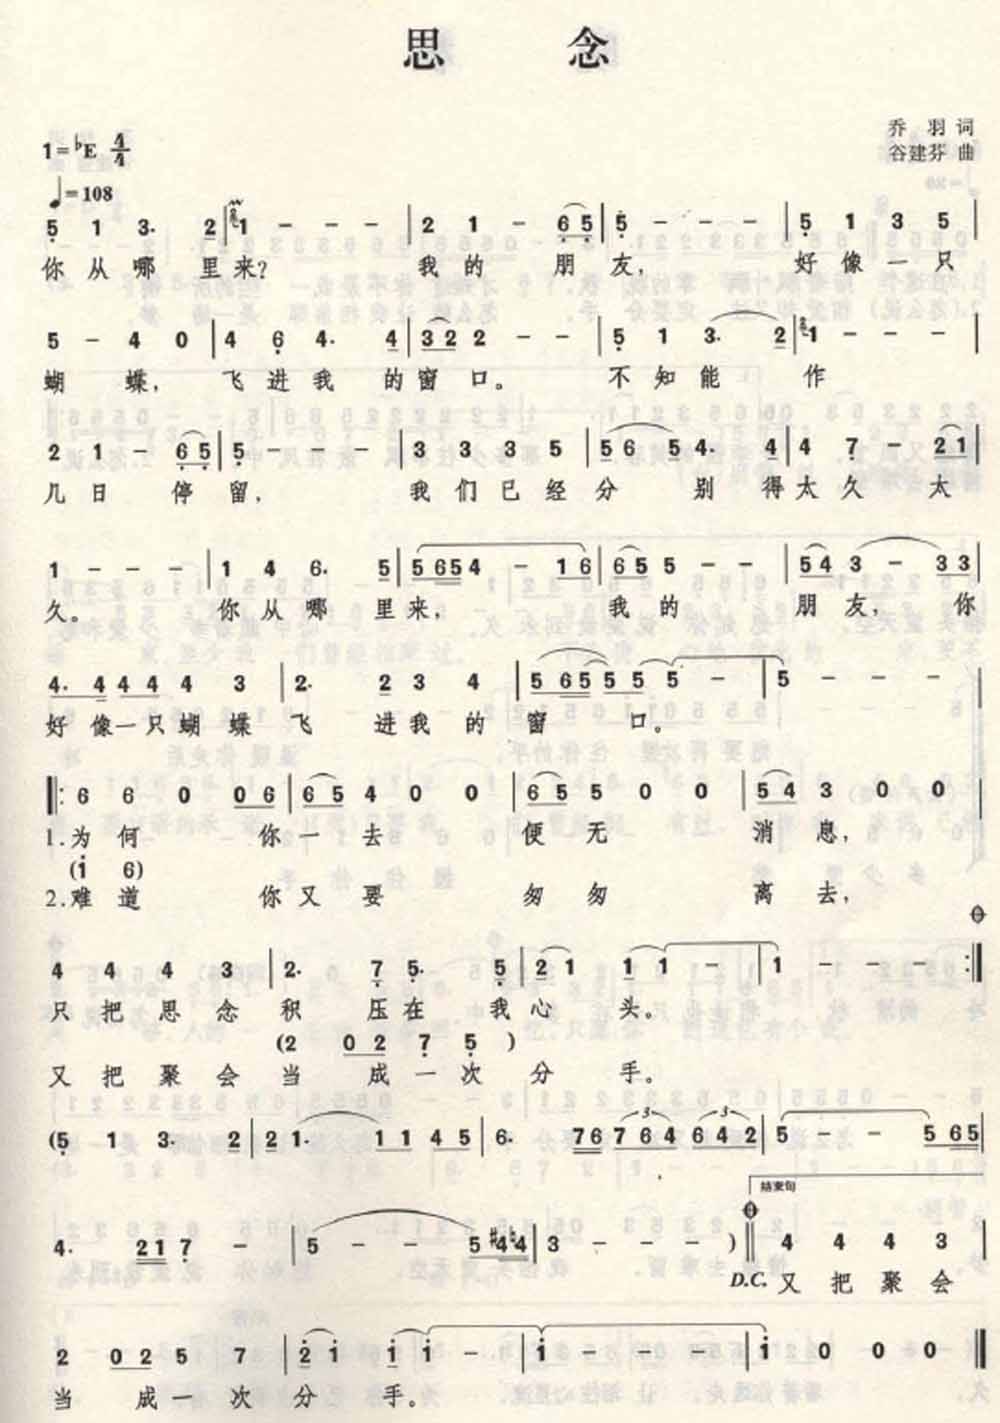 思 念
乔 羽 词
1=♭E 4/4
谷建芬 曲
♩=108
5 1 3. 2 | 1 - - - | 2 1 - 6 5 | 5 - - - | 5 1 3 5 |
你 从 哪 里 来? 我 的 朋 友, 好 像 一 只
5 - 4 0 | 4 6 4. 4 | 3 2 2 - - | 5 1 3. 2 | 1 - - - |
蝴 蝶, 飞 进 我 的 窗 口。 不 知 能 作
2 1 - 6 5 | 5 - - - | 3 3 3 5 | 5 6 5 4. 4 | 4 7 - 2 1 |
几 日 停 留, 我 们 已 经 分 别 得 太 久 太
1 - - - | 1 4 6. 5 | 5 6 5 4 - 1 6 | 6 5 5 - - | 5 4 3 - 3 3 |
久。 你 从 哪 里 来, 我 的 朋 友, 你
4. 4 4 4 4 3 | 2. 2 3 4 | 5 6 5 5 5 5 - | 5 - - - |
好 像 一 只 蝴 蝶 飞 进 我 的 窗 口。
6 6 0 0 6 | 6 5 4 0 0 | 5 5 0 0 | 5 4 3 0 0 |
1.为 何 你 一 去 便 无 消 息,
(i 6)
2.难 道 你 又 要 匆 匆 离 去,
4 4 4 3 | 2. 7 5. 5 | 2 1 1 1 - | 1 - - - :|
只 把 思 念 积 压 在 我 心 头。
(2 0 2 7 5 )
又 把 聚 会 当 成 一 次 分 手。
(5 1 3. 2 | 2 1. 1 1 4 5 | 6. 7 6 7 6 4 6 4 2 | 5 - - 5 6 5 |
3 3
结束句
4. 2 1 7 - | 5 - - 5 #4 ♮4 | 3 - - - ) | 4 4 4 3 |
D.C. 又 把 聚 会
2 0 2 5 7 | 2 i i i - | i - - - | i 0 0 0 |
当 成 一 次 分 手。